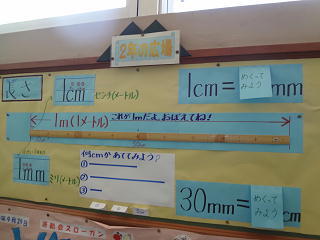 2年の広場
長さ
1cm
センチ(メートル)
1cm=めくってみようmm
1m(1メートル)これが1mだよ。おぼえてね!
1mm
ミリ(メートル)
何cmかあててみよう?
①
②
③
30mm=めくってみようcm
運動会スローガン